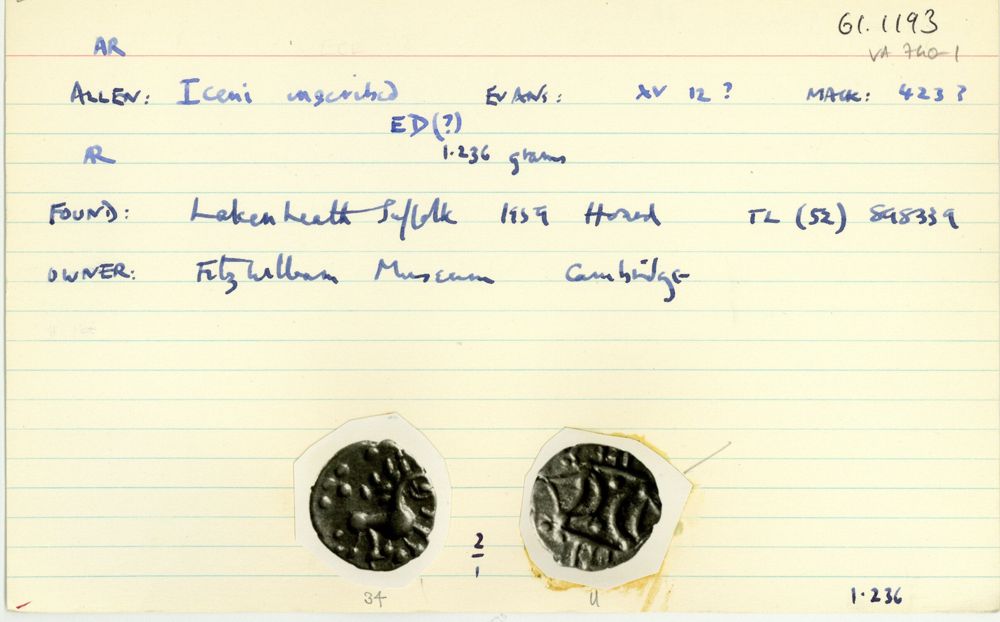 61.1193
AR VA 740-1
ALLEN: Iceni inscribed EVANS: XV 12 ? MACK: 423 ?
ED (?)
AR 1.236 grams
FOUND: Lakenheath Suffolk 1959 Hoard TL (52) 898339
OWNER: Fitzwilliam Museum Cambridge
2
1
34 U 1.236